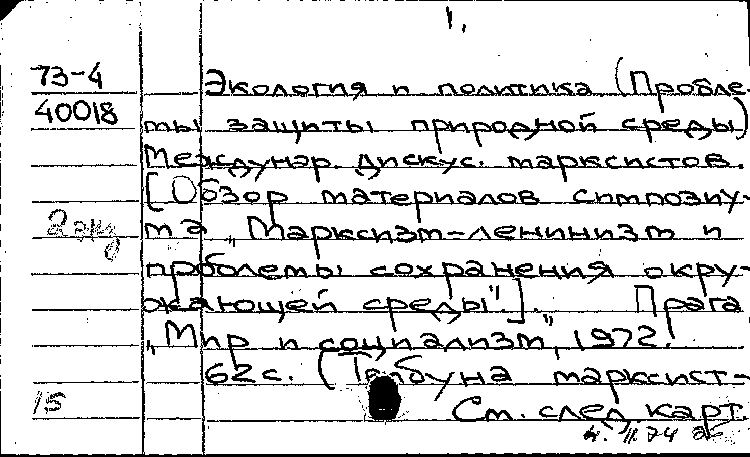 1.
73-4
40018
Экология и политика (Пробле-
мы защиты природной среды)
Междунар. дискус. марксистов.
[Обзор материалов симпозиу-
2 экз
ма „Марксизм-ленинизм и
проблемы сохранения окру-
жающей среды".]. Прага
„Мир и социализм", 1972.
62с. (Трибуна марксист-
15
См. след. карт.